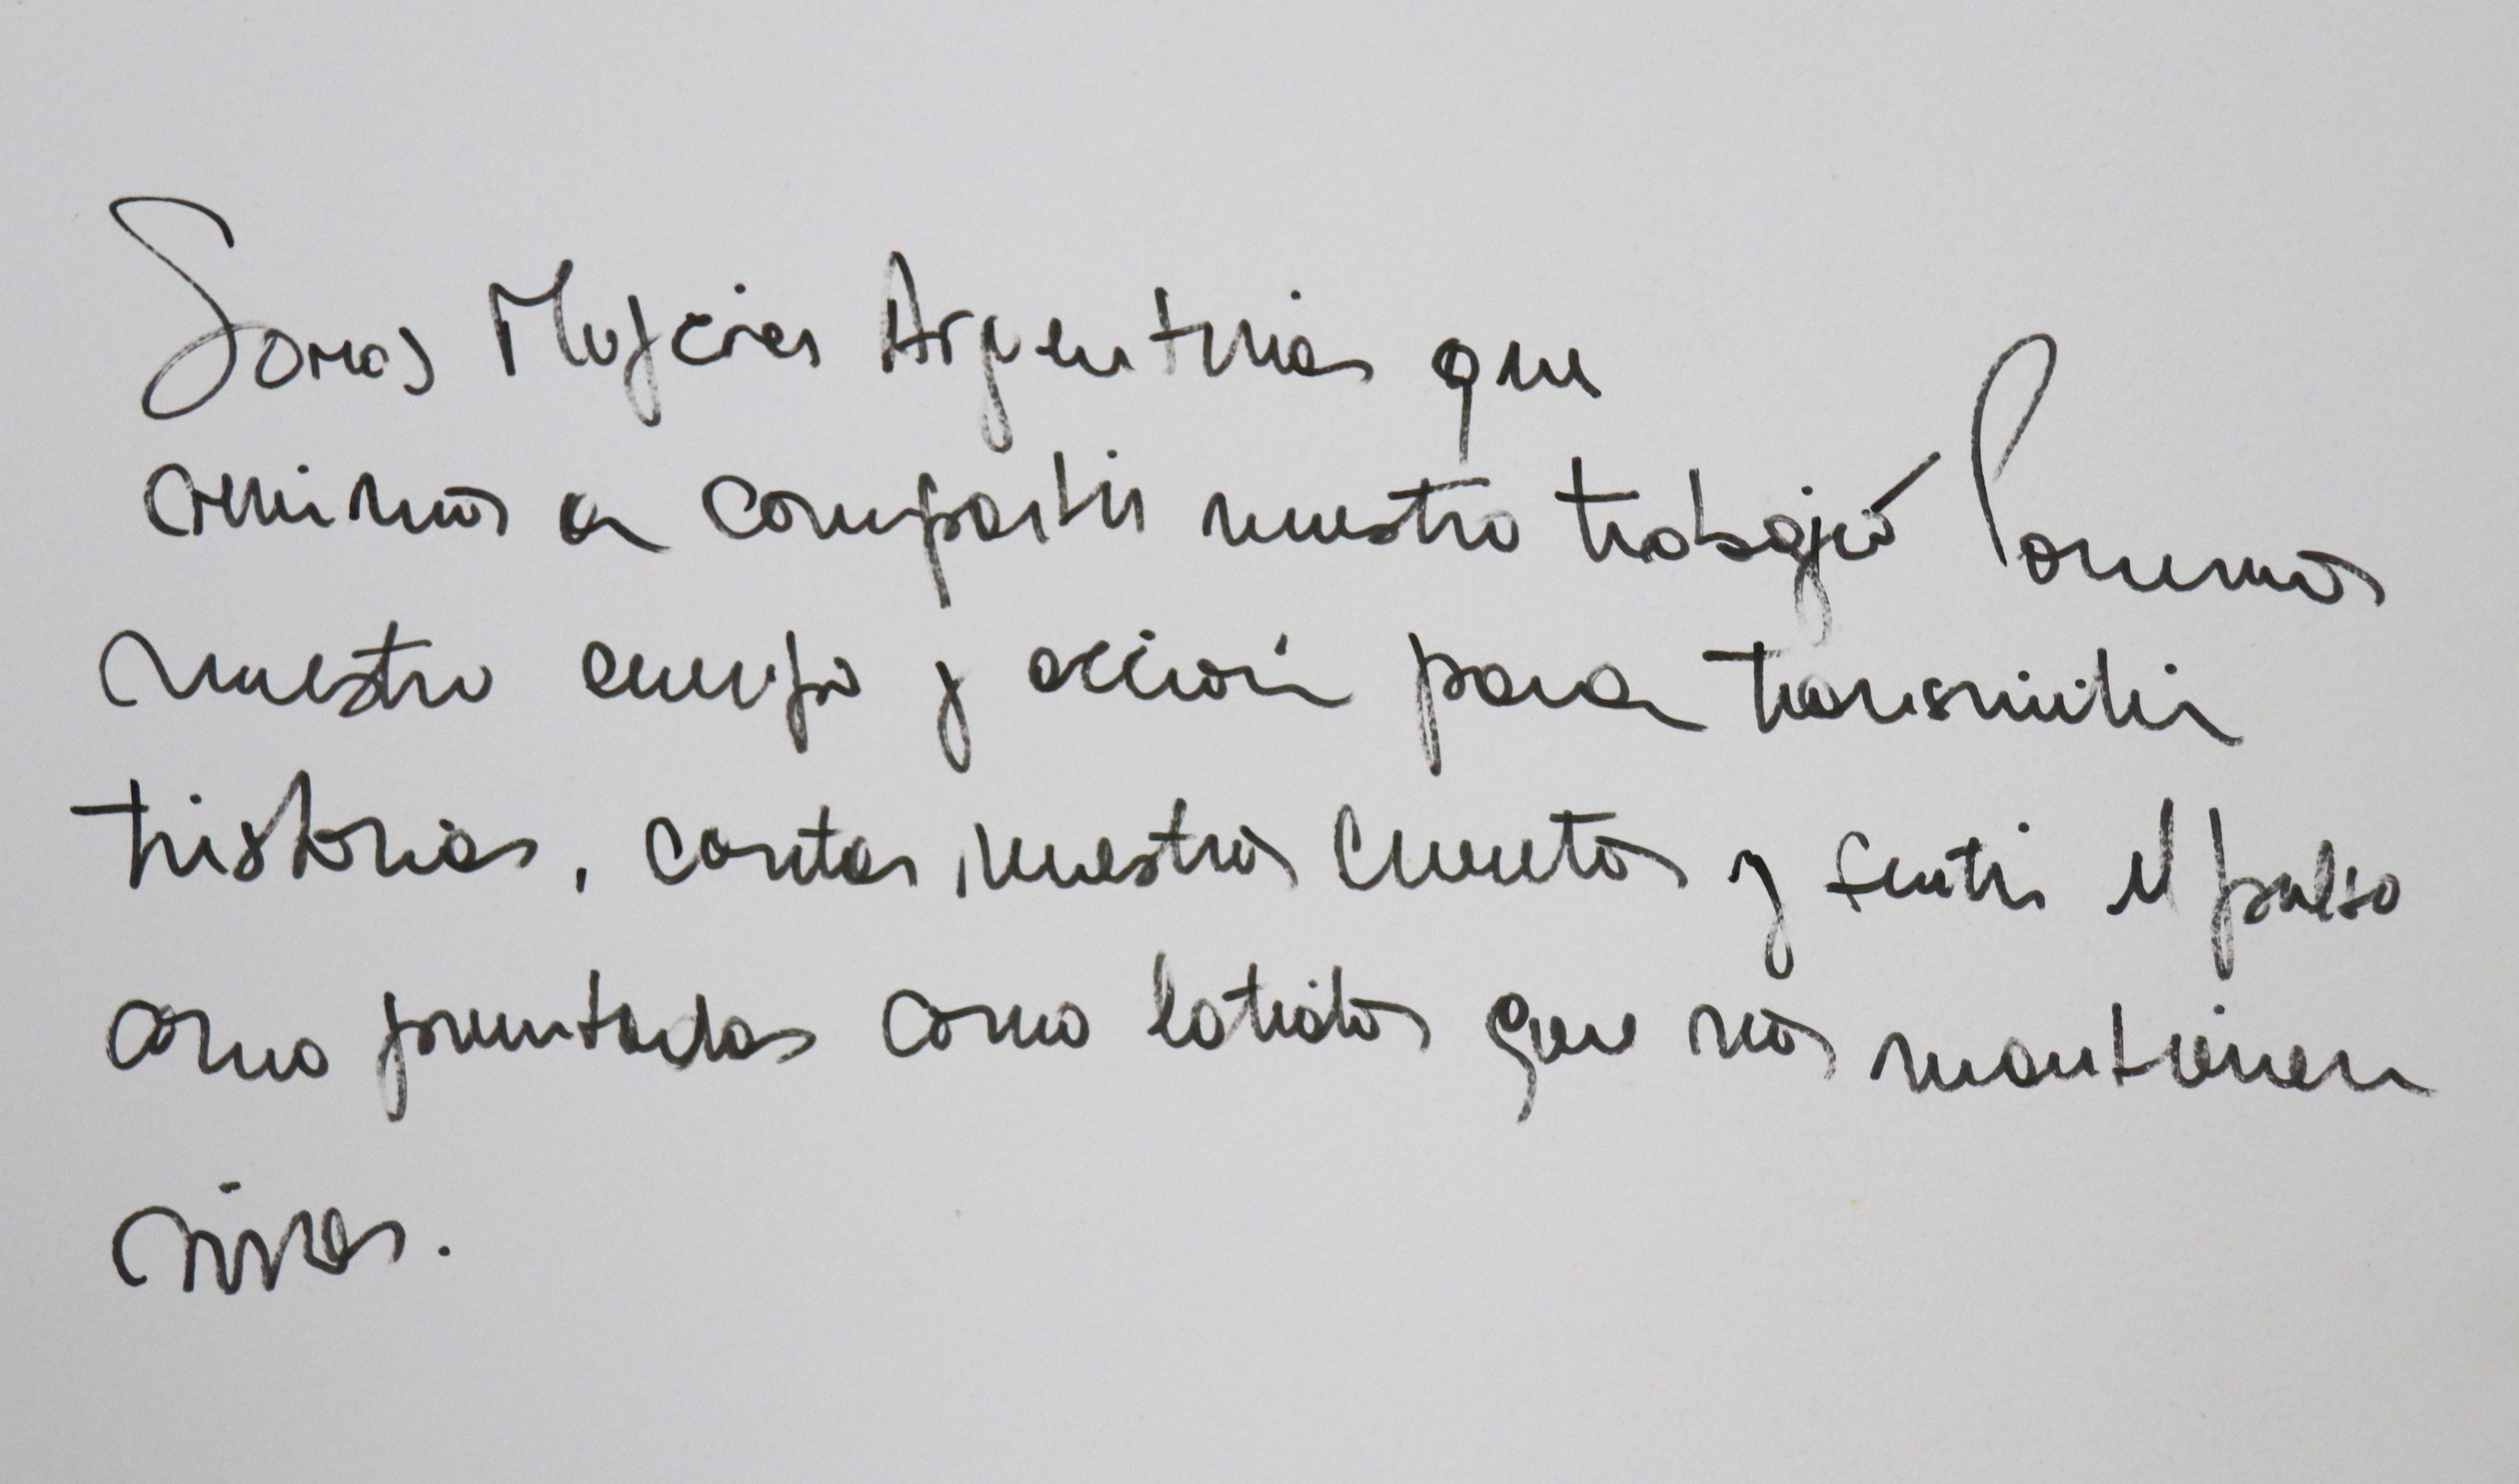 Somos Mujeres Argentinas que
venimos a compartir nuestro trabajo Ponemos
nuestro cuerpo y acción para transmitir
historias, contar nuestros cuentos y sentir el pulso
como puntadas como latidos que nos mantienen
vivas.